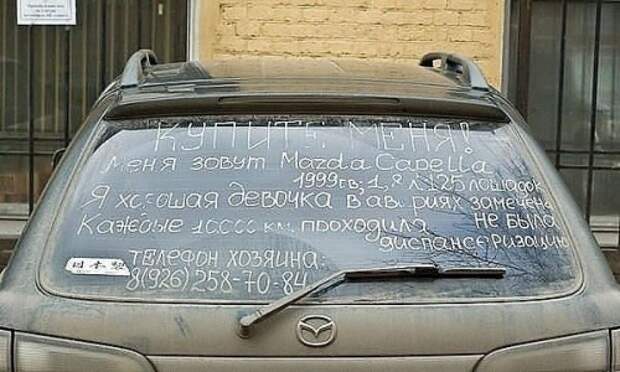 КУПИТЕ МЕНЯ!
Меня зовут Mazda Capella
1999гв; 1,8 л. 125 лошадок
Я хорошая девочка в авариях замечена
не была
Каждые 10000 км. проходила
диспансеризацию
ТЕЛЕФОН ХОЗЯИНА:
8(926)258-70-84